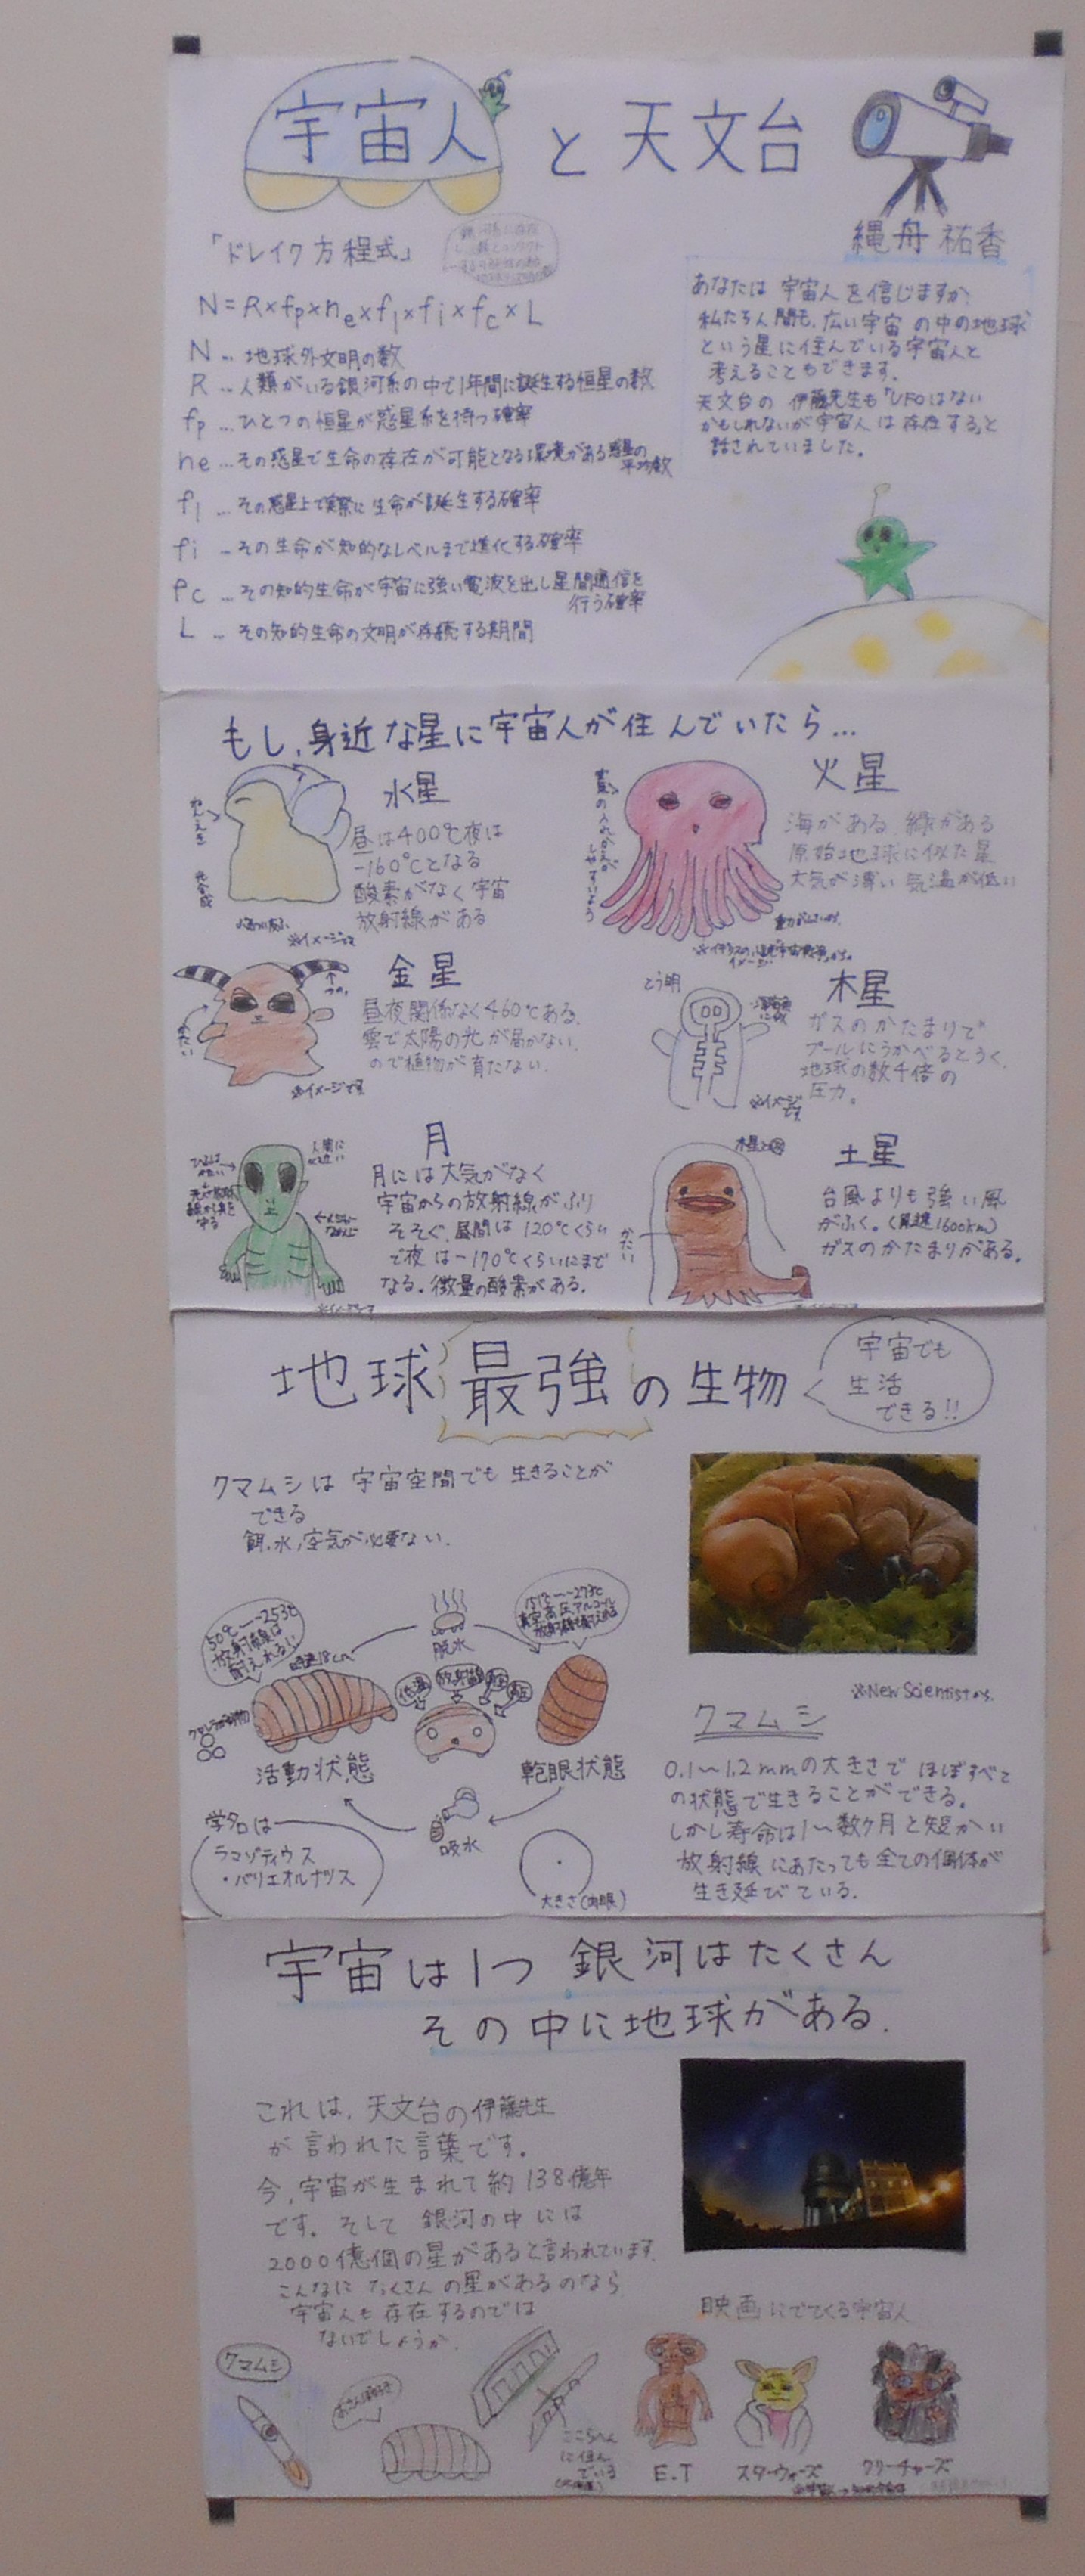 宇宙人と天文台
縄舟 祐香
「ドレイク方程式」
N=R×fp×ne×fl×fi×fc×L
N… 地球外文明の数
R… 人類がいる銀河系の中で1年間に誕生する恒星の数
fp …ひとつの恒星が惑星系を持つ確率
ne …その惑星で生命の存在が可能となる環境がある惑星の
平均数
fl …その惑星上で実際に生命が誕生する確率
fi …その生命が知的なレベルまで進化する確率
fc …その知的生命が宇宙に強い電波を出し星間通信を
行う確率
L … その知的生命の文明が存続する期間
あなたは宇宙人を信じますか?
私たち人間も、広い宇宙の中の地球
という星に住んでいる宇宙人と
考えることもできます。
天文台の伊藤先生も「UFOはない
かもしれないが宇宙人は存在する」と
話されていました。
もし、身近な星に宇宙人が住んでいたら…
水星
昼は400℃夜は
-160℃となる
酸素がなく宇宙
放射線がある
光合成
※イメージです
火星
海がある 緑がある
原始地球に似た星
大気が薄い 気温が低い
金星
昼夜関係なく460℃ある。
雲で太陽の光が届かない
ので植物が育たない。
かたい
つの。
※イメージです
木星
ガスのかたまりで
プールにうかべるとうく。
地球の数千倍の
圧力。
とう明
※イメージ
です
月
月には大気がなく
宇宙からの放射線がふり
そそぐ、昼間は120℃くらい
で夜は-170℃くらいにまで
なる。微量の酸素がある。
人間に
近い
土星
台風よりも強い風
がふく。(風速1600km)
ガスのかたまりがある。
かたい
地球最強の生物
宇宙でも
生活
できる!!
クマムシは宇宙空間でも生きることが
できる
餌、水、空気が必要ない。
50℃〜-253℃
放射線は
耐えれる!!
脱水
151℃〜-273℃
真空 高圧 アルコール
低温
放射線
活動状態
乾眠状態
吸水
学名は
ラマゾティウス
・バリエオルナツス
大きさ(肉眼)
※New Scientistから
クマムシ
0.1〜1.2mmの大きさでほぼすべて
の状態で生きることができる。
しかし寿命は1〜数ヶ月と短かい
放射線にあたっても全ての個体が
生き延びている。
宇宙は1つ 銀河はたくさん
その中に地球がある。
これは、天文台の伊藤先生
が言われた言葉です。
今、宇宙が生まれて約138億年
です。そして銀河の中には
2000億個の星があると言われています。
こんなにたくさんの星があるのなら
宇宙人も存在するのでは
ないでしょうか。
映画にでてくる宇宙人
クマムシ
ここらへん
に住ん
でいる
E.T
スターウォーズ
クリーチャーズ